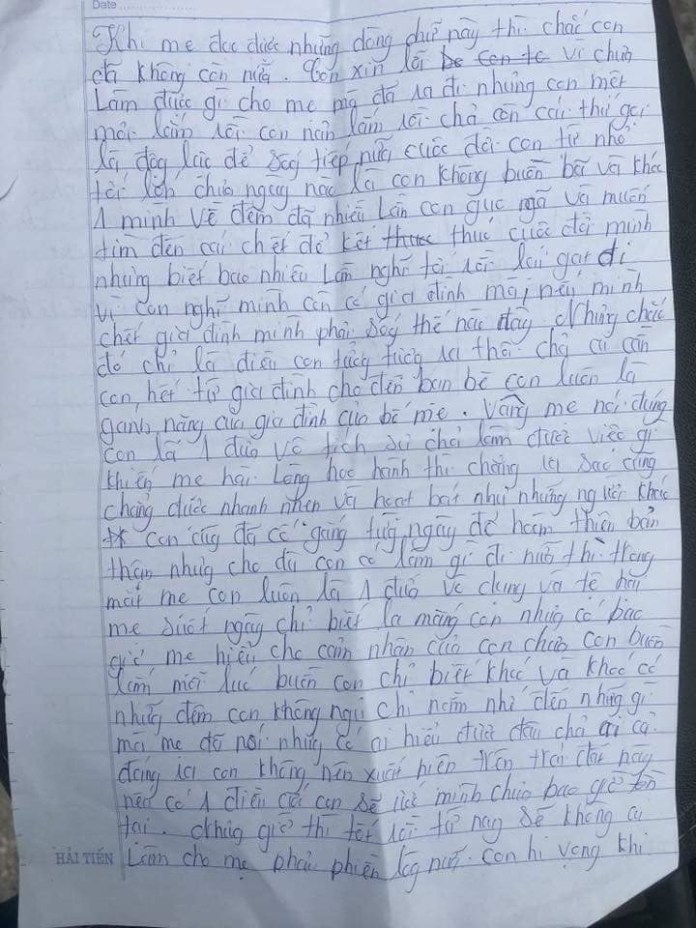 Date
Khi mẹ đọc được những dòng chữ này thì chắc con
đã không còn nữa. Con xin lỗi bố con to vì chưa
Làm được gì cho mẹ mà đã ra đi nhưng con mệt
mỏi lắm rồi con nản lắm rồi chả còn cái thứ gọi
là động lực để sống tiếp nữa cuộc đời con từ nhỏ
tới lớn chưa ngày nào là con không buồn bã và khóc
1 mình về đêm đã nhiều Lần con gục ngã và muốn
tìm đến cái chết để kết thuc thúc cuộc đời mình
nhưng biết bao nhiêu Lần nghĩ tới rồi lại gạt đi
vì con nghĩ mình còn có gia đình mà, nếu mình
chết gia đình mình phải sống thế nào đây. Nhưng chắc
đó chỉ là điều con tưởng tượng ra thôi chả ai cần
con, hết từ gia đình cho đến bạn bè con luôn là
gánh nặng của gia đình của bố mẹ. Vâng mẹ nói đúng
con là 1 đứa vô tích sự chả làm được việc gì
khiến mẹ hài Lòng học hành thì chẳng ra sao cũng
chẳng được nhanh nhẹn và hoạt bát như những người khác
con cũng đã cố gắng từng ngày để hoàn thiện bản
thân nhưng cho dù con có làm gì đi nữa thì trong
mắt mẹ con luôn là 1 đứa vô dụng và tệ hại
mẹ suốt ngày chỉ biết la mắng con nhưng có bao
giờ mẹ hiểu cho cảm nhận của con chưa con buồn
lắm mỗi lúc buồn con chỉ biết khóc và khóc có
những đêm con không ngủ chỉ nằm nhớ đến những gì
mà mẹ đã nói nhưng có ai hiểu được đâu chả ai cả
đáng ra con không nên xuất hiện trên trái đất này
nếu có 1 điều ước con sẽ ước mình chưa bao giờ tồn
tại. Nhưng giờ thì tốt rồi từ nay sẽ không ai
HẢI TIẾN Làm cho mẹ phải phiền lòng nữa. con hi vọng khi